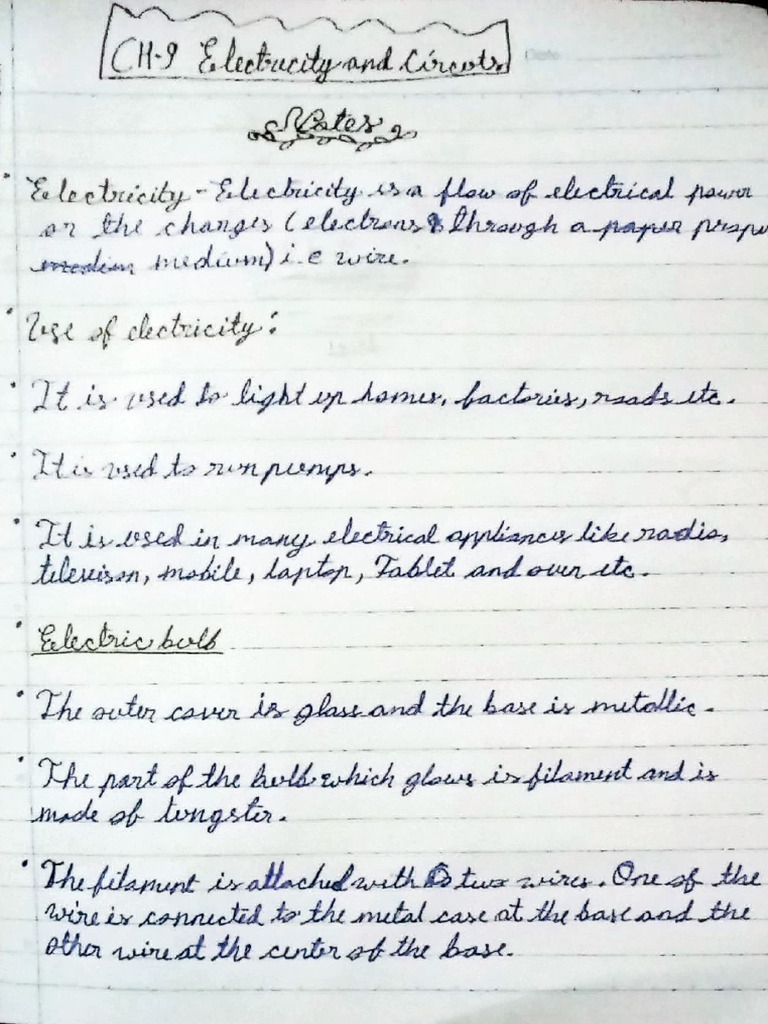 CH-9 Electricity and Circuts
Notes
Electricity - Electricity is a flow of electrical power
or the charges (electrons through a paper prope
medium medium) i.e wire.
Use of electricity:
It is used to light up homes, factories, roads etc.
It is used to run pumps.
It is used in many electrical appliances like radio,
televison, mobile, laptop, Tablet and oven etc.
Electric bulb
The outer cover is glass and the base is metallic.
The part of the bulb which glows is filament and is
made of tungster.
The filament is attached with two wires. One of the
wire is connected to the metal case at the base and the
other wire at the center of the base.